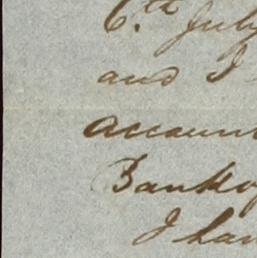 6.th July
and I
account
Bank of
I have